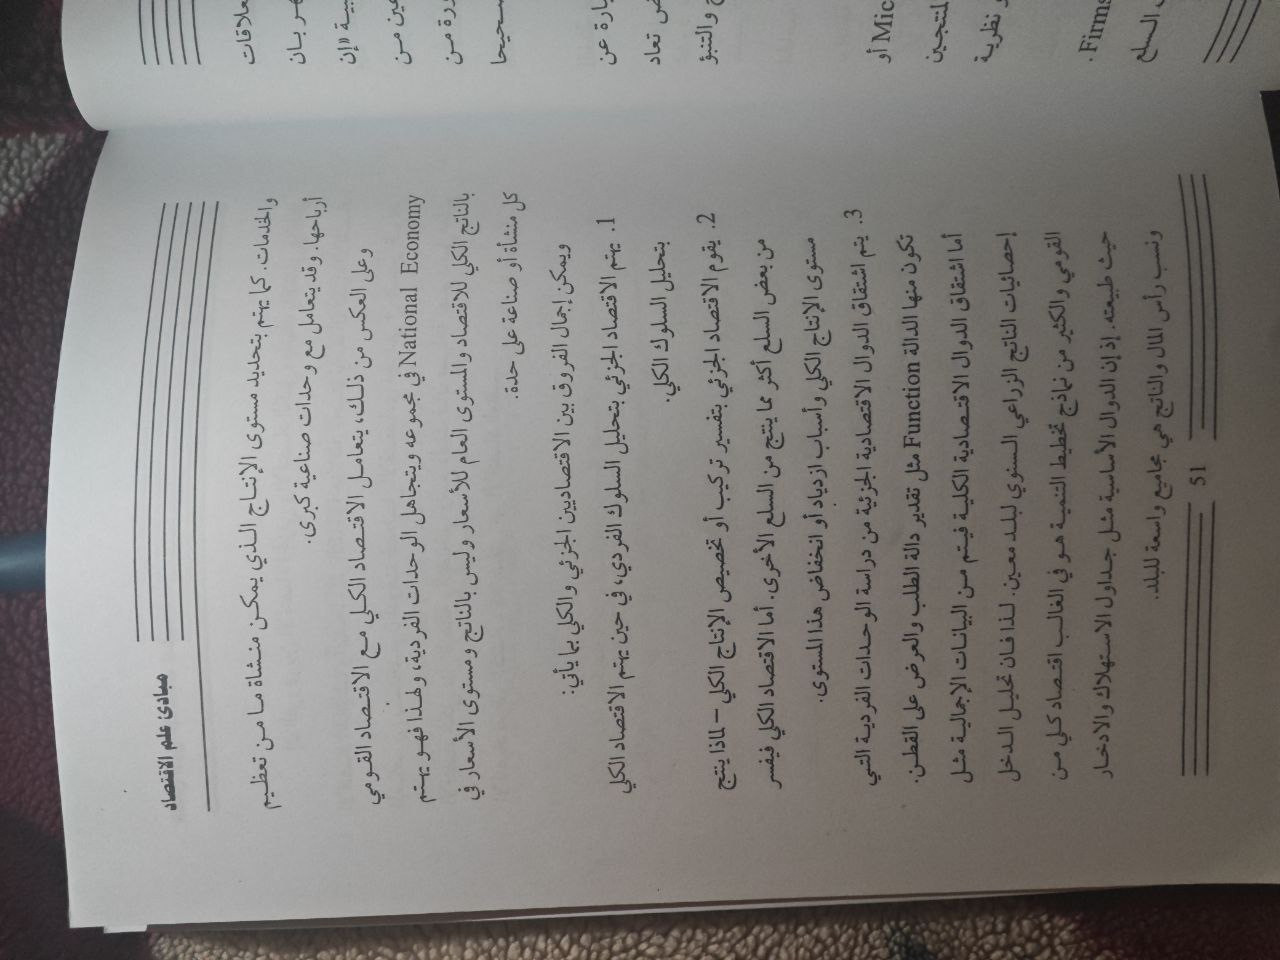 مبادئ علم الاقتصاد
والخدمات. كما يهتم بتحديد مستوى الإنتاج الذي يمكن منشاة ما من تعظيم
أرباحها. وقد يتعامل مع وحدات صناعية كبرى.
وعلى العكس من ذلك، يتعامل الاقتصاد الكلي مع الاقتصاد القومي
National Economy في مجموعه ويتجاهل الوحدات الفردية، ولهذا فهو يهتم
بالناتج الكلي للاقتصاد والمستوى العام للأسعار وليس بالناتج ومستوى الأسعار في
كل منشأة أو صناعة على حدة.
ويمكن إجمال الفروق بين الاقتصاديين الجزئي والكلي بما يأتي:
1. يهتم الاقتصاد الجزئي بتحليل السلوك الفردي، في حين يهتم الاقتصاد الكلي
بتحليل السلوك الكلي.
2. يقوم الاقتصاد الجزئي بتفسير تركيب أو تخصيص الإنتاج الكلي – لماذا ينتج
من بعض السلع أكثر مما ينتج من السلع الأخرى. أما الاقتصاد الكلي فيفسر
مستوى الإنتاج الكلي وأسباب ازدياد أو انخفاض هذا المستوى.
3. يتم اشتقاق الدوال الاقتصادية الجزئية من دراسة الوحدات الفردية التي
تكون منها الدالة Function مثل تقدير دالة الطلب والعرض على القطن.
أما اشتقاق الدوال الاقتصادية الكلية فيتم من البيانات الإجمالية مثل
إحصائيات الناتج الزراعي السنوي لبلد معين. لذا فان تحليل الدخل
القومي والكثير من نماذج تخطيط التنمية هو في الغالب اقتصاد كلي من
حيث طبيعته. إذ إن الدوال الأساسية مثل جداول الاستهلاك والادخار
ونسب رأس المال والناتج هي مجاميع واسعة للبلد.
51
علاقات
بية «إن
عين من
ورة من
سحيحا
بارة عن
ض تعاد
ج والتنبؤ
Mic أو
لمنتجين
و نظرية
Firms.
ى السلع